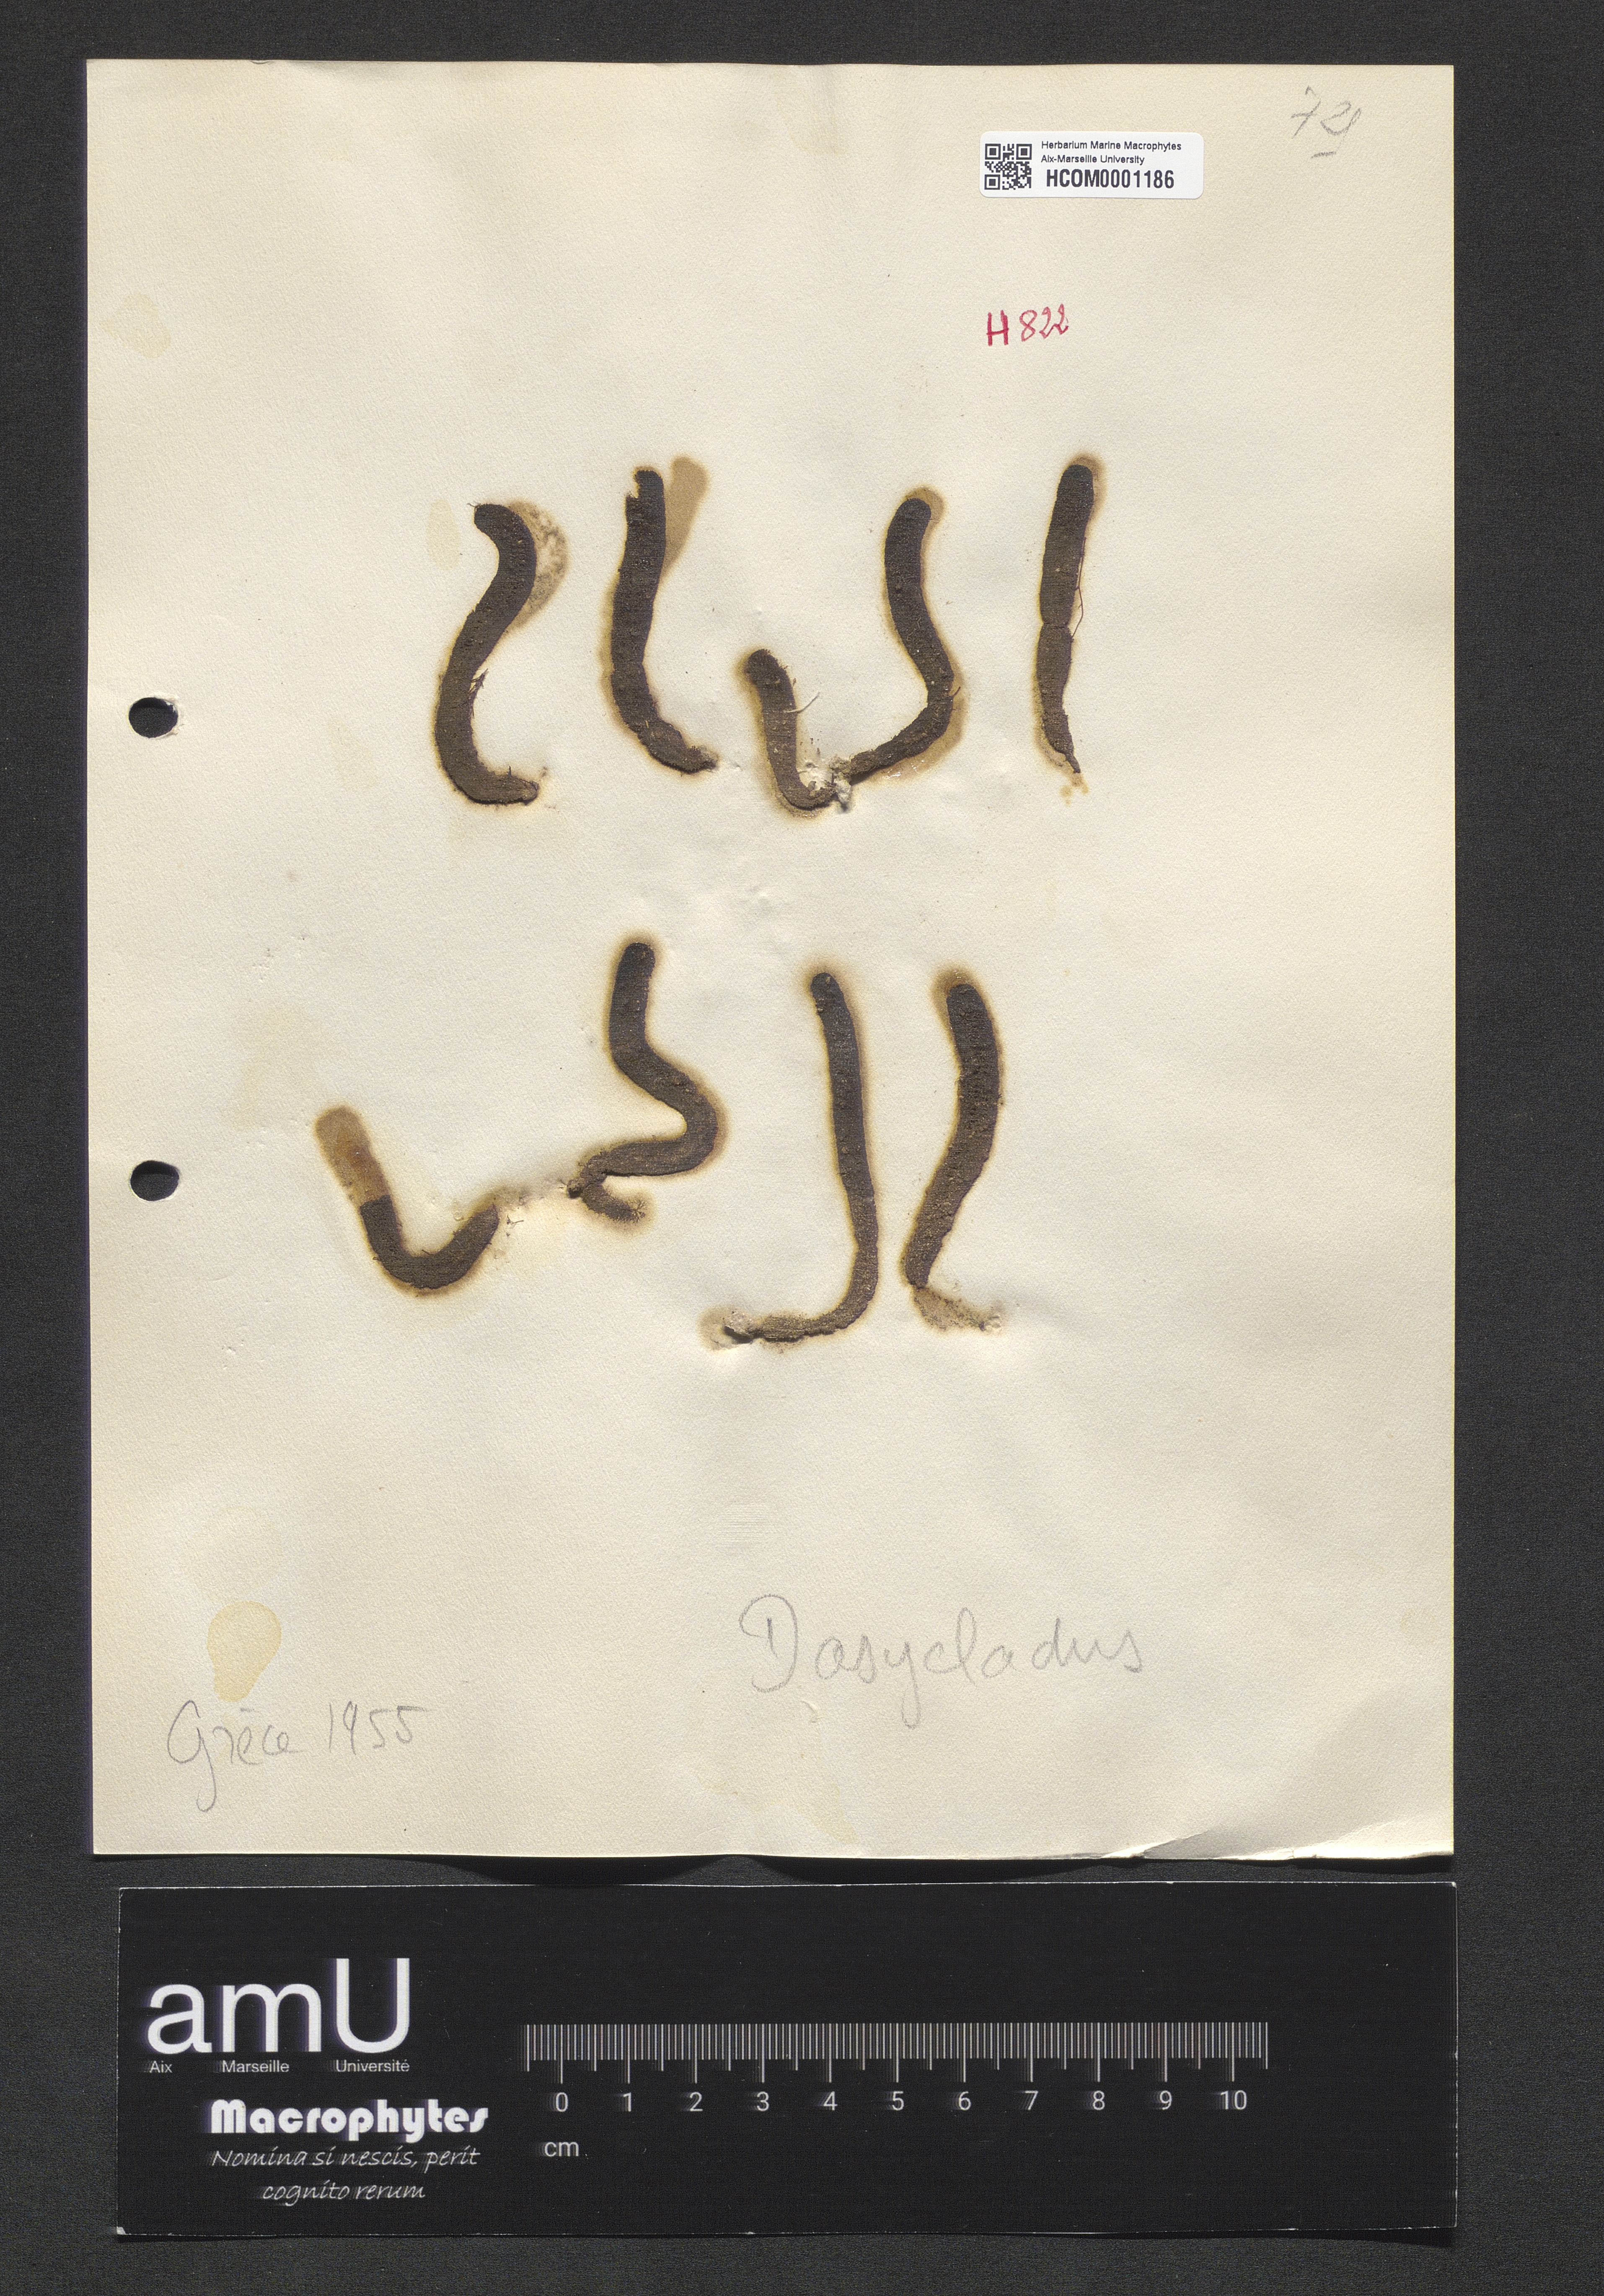 72
Herbarium Marine Macrophytes
Aix-Marseille University
HCOM0001186
H 822
Dasycladus
Grèce 1955
amU
Aix Marseille Université
Macrophytes
Nomina si nescis, perit
cognito rerum
0 1 2 3 4 5 6 7 8 9 10
cm